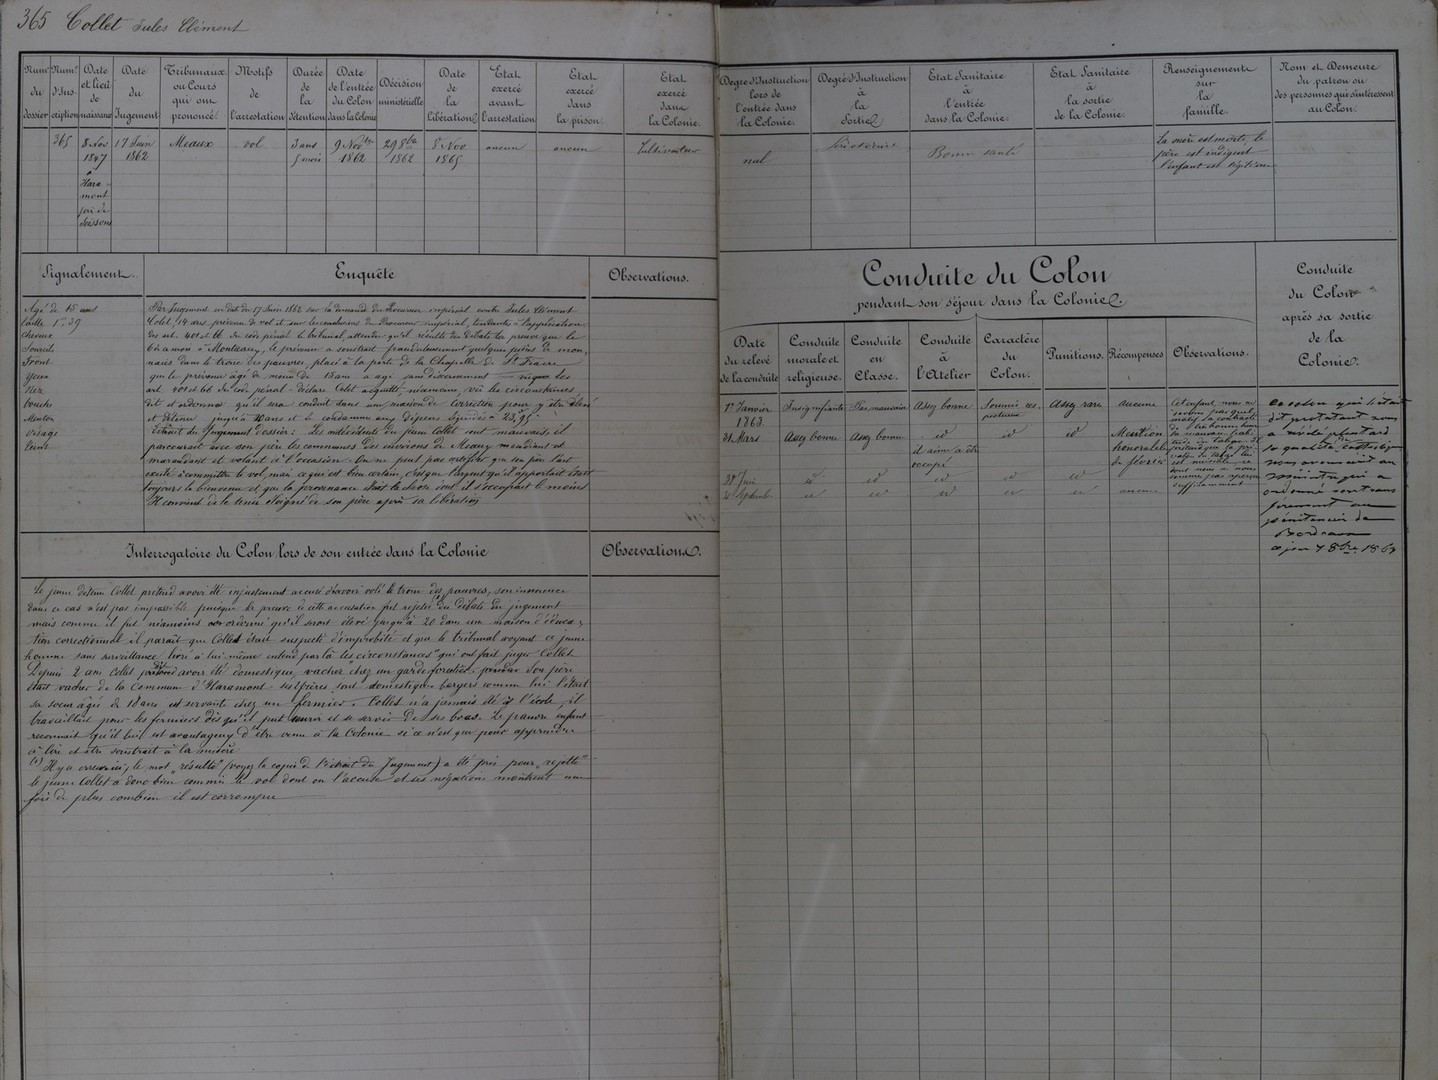 365 Collet Jules Clément
Num.º du dossier
Num.º d'Inscription
Date et lieu de naissance
Date du Jugement
Tribunaux ou Cours qui ont prononcé.
Motifs de l'arrestation
Durée de la détention
Date de l'entrée du Colon dans la Colonie
Décision ministérielle
Date de la Libération
Etat exercé avant l'arrestation
Etat exercé dans la prison.
Etat exercé dans la Colonie.
Degré d'Instruction lors de l'entrée dans la Colonie.
Degré d'Instruction à la Sortie
Etat Sanitaire à l'entrée dans la Colonie.
Etat Sanitaire à la sortie de la Colonie.
Renseignements sur la famille.
Nom et Demeure du patron ou des personnes qui s'intéressent au Colon.
365
8 Nov 1847 à Haramont près de Soissons
17 Juin 1862
Meaux
vol
3 ans 5 mois
9 Nov.bre 1862
29 8bre 1862
8 Nov 1865
aucun
aucun
Cultivateur
nul
Bonne santé
La mère est morte, le
père est indigent
l'enfant est légitime
Signalement.
Enquête
Observations.
Agé de 15 ans
taille 1m 39
Cheveux
Sourcils
Front
Yeux
Nez
bouche
Menton
Visage
Teint
Par Jugement en dat du 17 Juin 1862 sur la demande du Procureur impérial contre Jules Clément
Colet, 14 ans, prévenu de vol et sur les conclusions du Procureur impérial, tendantes à l'application
des art. 401 et 66 du code pénal le tribunal, attendu qu'il résulte des débats la preuve que le
à Monthyon, le prévenu a soustrait frauduleusement quelques pièces de mon-
naies dans le tronc des pauvres, placé à la porte de la Chapelle de St Fiacre
que le prévenu âgé de moins de 16 ans a agi sans discernement
art. 401 et 66 du code pénal - déclare Colet acquitté, néanmoins, vu les circonstances,
dit et ordonne qu'il sera conduit dans une maison de correction pour y être élevé
et détenu jusqu'à 20 ans et le condamne aux dépens liquidés à 23,95
Extrait du Jugement dossier: Les antécédents du jeune Collet sont mauvais, il
parcourait avec son père les communes des environs de Meaux mendiant et
maraudant et volant à l'occasion. On ne peut pas certifier que son père l'ait
excité à commettre le vol, mais ce qui est bien certain, c'est que l'argent qu'il apportait était
toujours le bienvenu et que la provenance était la chose dont il s'occupait le moins
Il convient de le tenir éloigné de son père après sa libération
Interrogatoire du Colon lors de son entrée dans la Colonie
Observations.
Le jeune détenu Collet prétend avoir été injustement accusé d'avoir volé le tronc des pauvres, son innocence
dans ce cas n'est pas impossible puisque la preuve de cette accusation fut rejetée (1) des débats du jugement
mais comme il fut néanmoins ordonné qu'il serait élevé jusqu'à 20 dans une maison d'éduca-
tion correctionnel il paraît que Collet était suspecté d'improbité et que le tribunal voyant ce jeune
homme sans surveillance livré à lui même entend par là les circonstances "qui ont fait juger Collet
Depuis 2 ans Collet prétend avoir été domestique, vacher chez un garde forestier. Son père
était vacher de la Commune d'Haramont ses frères sont domestiques bergers comme lui l'était
sa sœur âgée de 18 ans est servante chez un fermier. Collet n'a jamais été à l'école, il
travaillait pour les fermiers dès qu'il put courir et se servir de ses bras. Le pauvre enfant
reconnaît qu'il lui est avantageux d'être venu à la Colonie si ce n'est que pour apprendre
à lire et être soustrait à la misère
(1) Il y a erreur ici, le mot "résulte" (voyez la copie de l'extrait du Jugement) a été pris pour "rejette"
le jeune Collet a donc bien commis le vol dont on l'accuse et ses négations montrent une
fois de plus combien il est corrompu
Conduite du Colon
pendant son séjour dans la Colonie.
Date du relevé de la conduite
Conduite morale et religieuse.
Conduite en Classe.
Conduite à l'Atelier
Caractère du Colon.
Punitions.
Récompenses
Observations.
Conduite du Colon après sa sortie de la Colonie.
1er Janvier 1863.
Insignifiante
Pas mauvaise
Assez bonne
Assez rare
aucune
31 Mars
Assez bonne
Assez bonne
id
il aime à être occupé
id
id
Mention honorable de février
30 Juin
id
id
id
id
id
Septembre
id
id
id
id
id
aucune
Ce colon qui s'était
dit protestant nous
a révélé plus tard
sa qualité de catholique
nous avons écrit au
ministre qui a
ordonné son trans
fèrement au
pénitencier de
Bordeaux